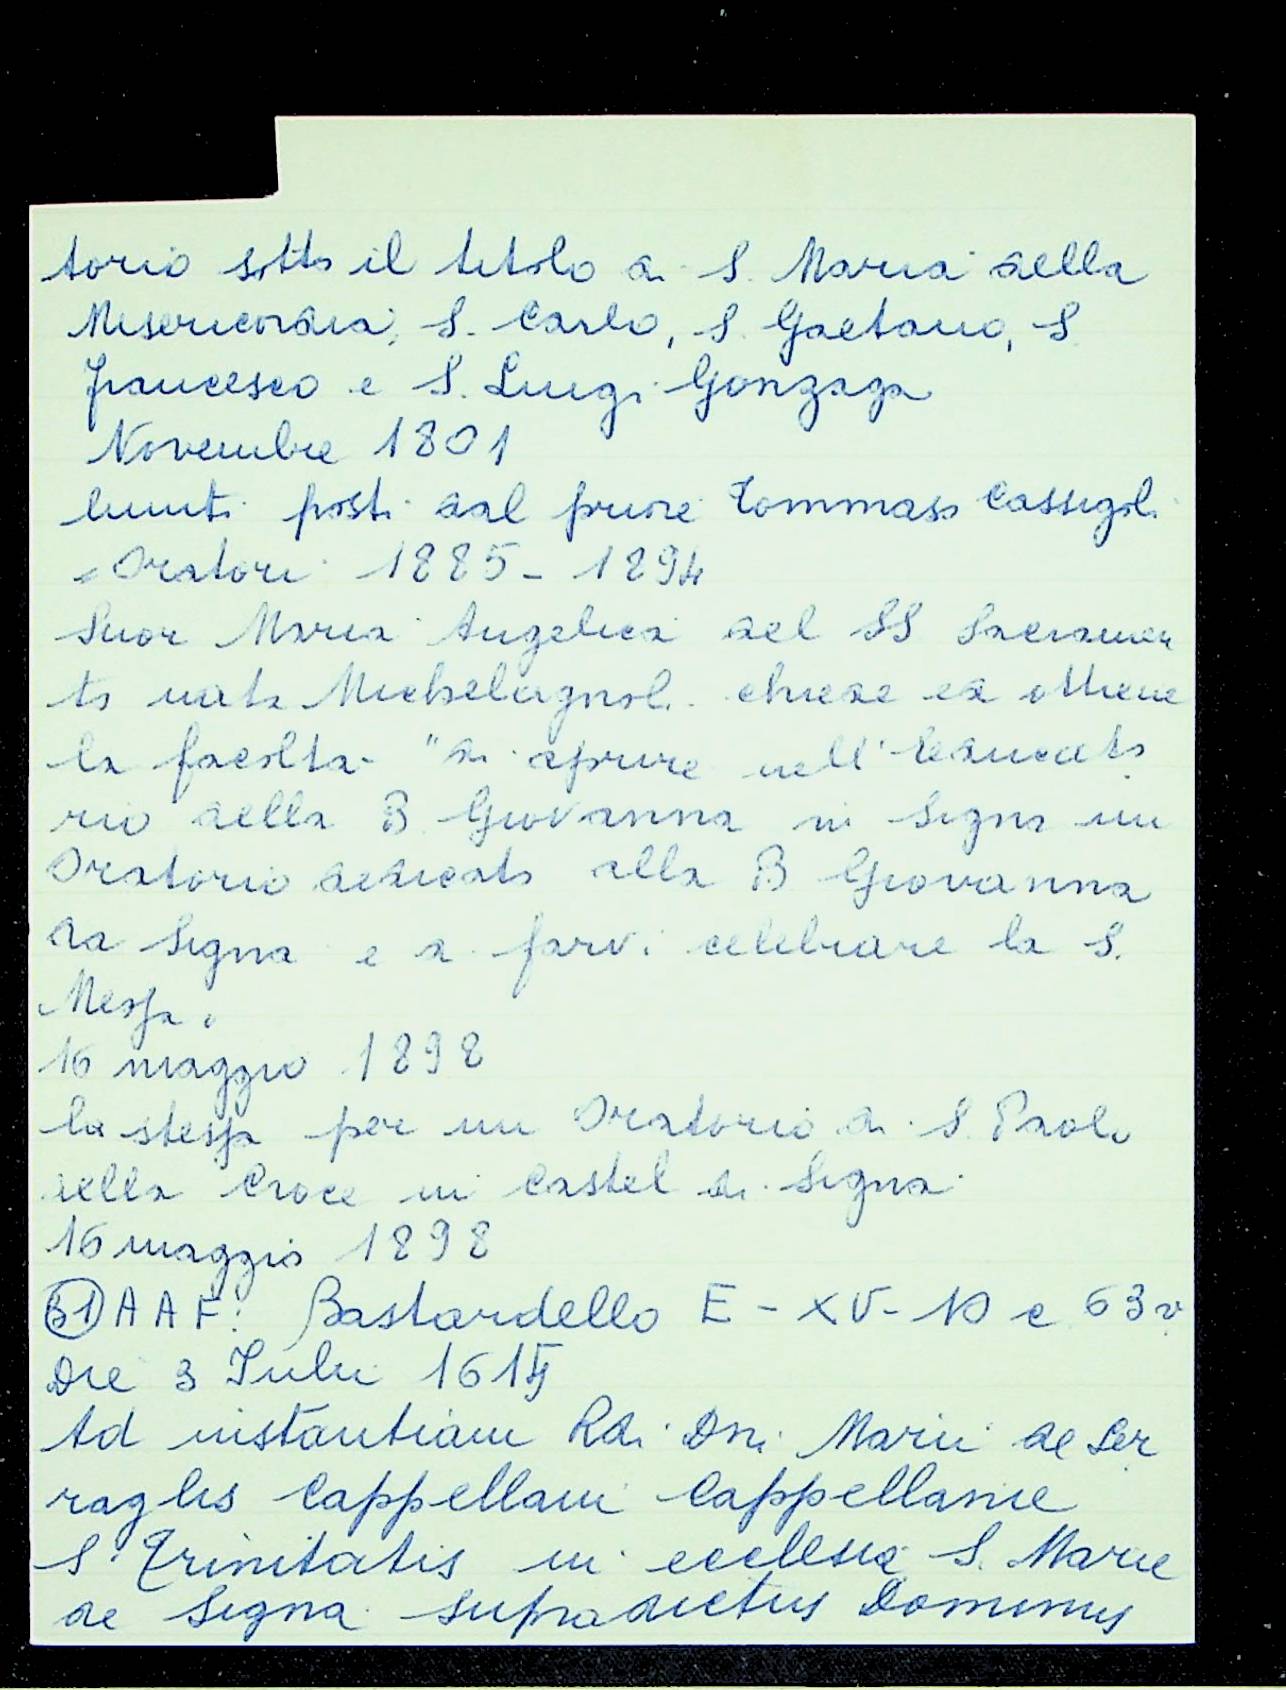 torio sotto il titolo di S. Maria della
Misericordia, S. Carlo, S. Gaetano, S
Francesco e S. Luigi Gonzaga
Novembre 1801
posti dal priore Tommaso Cassigoli
Oratori 1885 - 1894
Suor Maria Angelica del SS Sacramen
to nata Michelagnoli chiede ed ottiene
la facoltà "di aprire nell'Educato
rio della B Giovanna in Signa un
Oratorio dedicato alla B Giovanna
da Signa e di farvi celebrare la S.
Messa.
16 maggio 1898
la stessa per un Oratorio di S. Paolo
della Croce in Castel di Signa
16 maggio 1898
AAF: Bastardello E - XV - 10 c 63v
Die 3 Iulii
Ad instantiam Rdi Dni Marii de Ser
raglis Cappellani Cappellanie
S Trinitatis in ecclesia S. Marie
de Signa supradictus Dominus